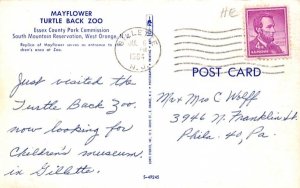 MAYFLOWER
TURTLE BACK ZOO
Essex County Park Commission
South Mountain Reservation, West Orange, N.J.
Replica of Mayflower serves as entrance to
area of Zoo.
Just visited the
Turtle Back Zoo.
now looking for
Children's museum
in Gillette.
HE
N.J.
4¢
POST CARD
Mr + Mrs C Wolff
3946 N. Franklin St.
Phila. 40, Pa.
S-49245